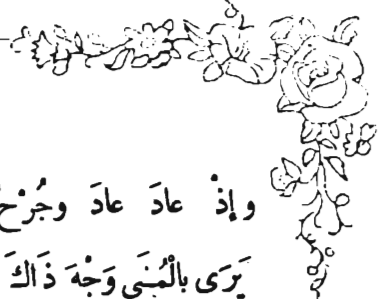 وإذْ عادَ عادَ وجُرْحُ
يَرَى بِالْمُنَى وَجْهَ ذَاكَ